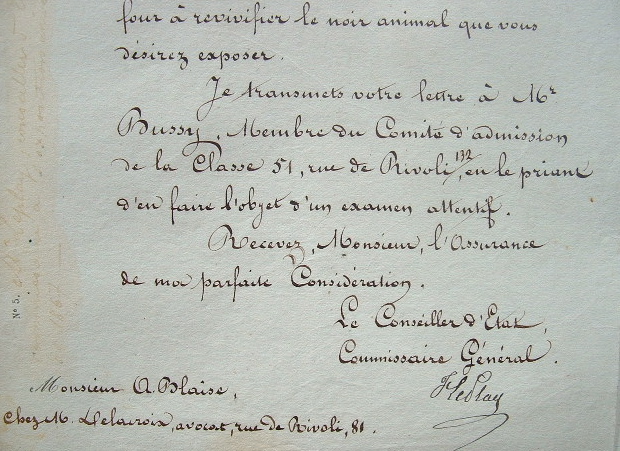 four à revivifier le noir animal que vous
désirez exposer.
Je transmets votre lettre à Mr
Bussy, Membre du Comité d'admission
de la Classe 51, rue de Rivoli, 132, en le priant
d'en faire l'objet d'un examen attentif.
Recevez, Monsieur, l'Assurance
de ma parfaite Considération.
Le Conseiller d'Etat,
Commissaire Général.
F Le Play
Monsieur A. Blaise,
Chez M. Delacroix, avocat, rue de Rivoli, 81.
N° 5.